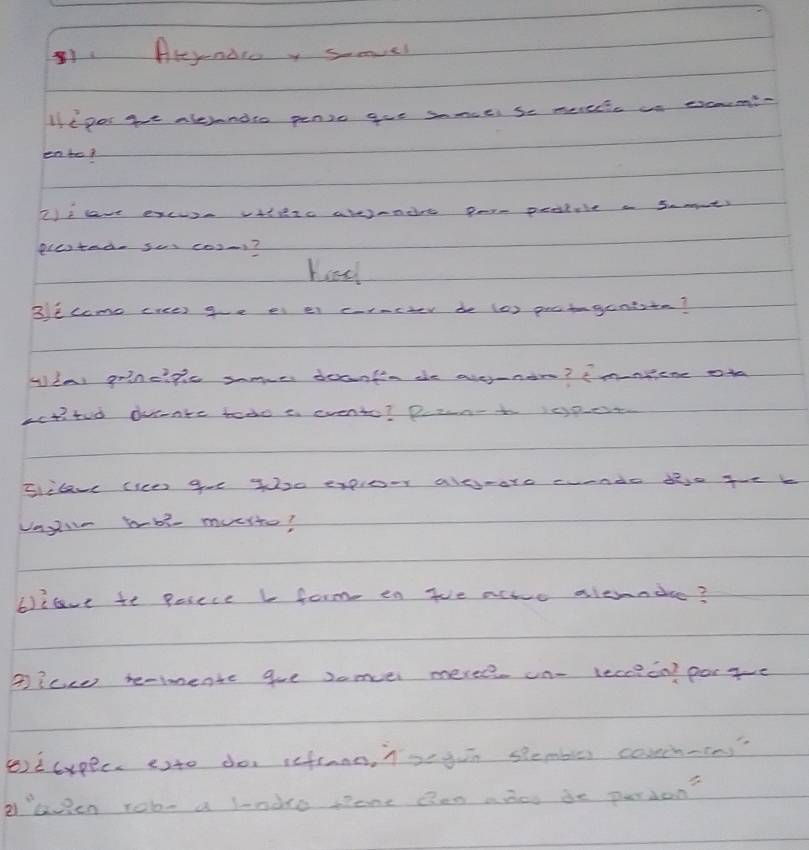 Alejandro y Samuel
1) ¿por que alejandro penso que samuel se merecia un escarmi-
ento?
2) ¿que excusa utilizo alejandro para pedirle a Samuel
prestada sus cosas?
3) ¿como crees que es el caracter de los protagonista?
4) ¿al principio samuel de alejandro? ¿mantiene esta
actitud durante todo el evento?
5) ¿que crees que quiso expresar alejandro cuando dijo que la
había muerto?
6) ¿que te parece la forma en que actuo alejandro?
7) ¿crees realmente que samuel merecia una leccion? por que
8) ¿explica esto dos refranes, 1 según siembres cosecharas"
2) "quien roba a ladro tiene cien años de perdon"